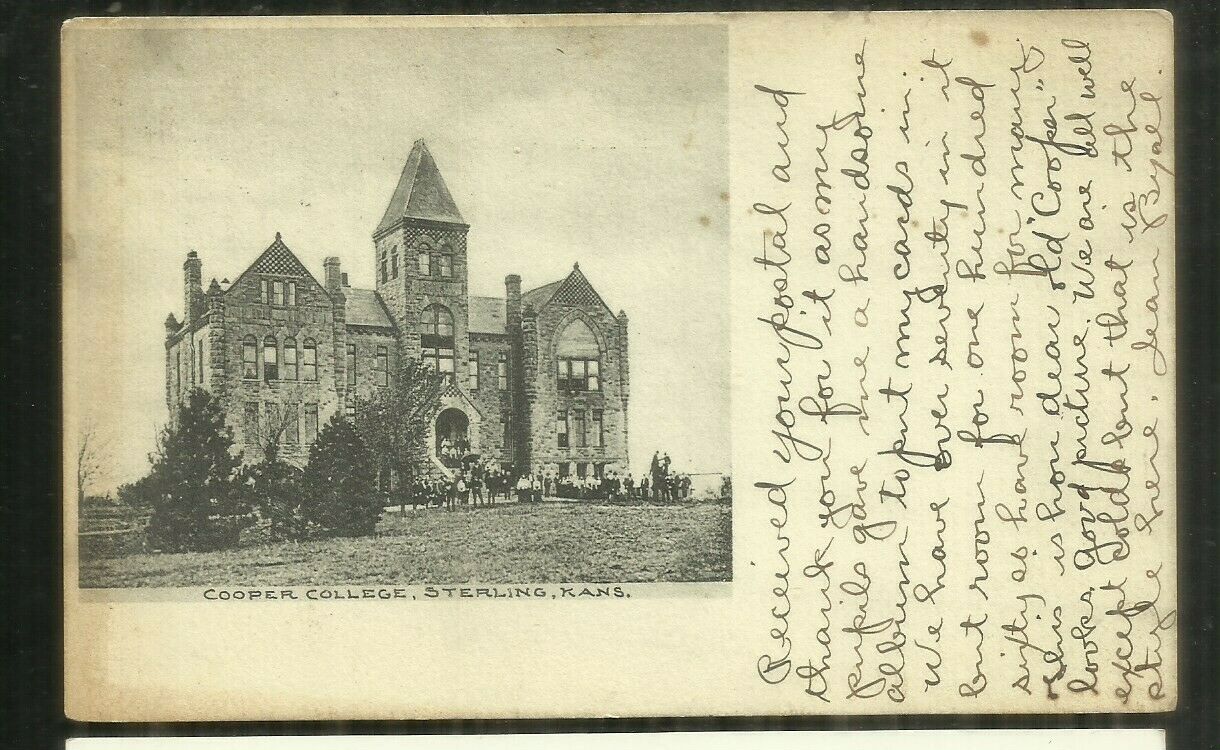 COOPER COLLEGE, STERLING, KANS.
Received your postal and
thank you for it as my
pupils gave me a handsome
album to put my cards in.
We have over seventy in it
but room for one hundred
sixty so have room for many.
This is how dear old "Cooper"
looks, good picture. We are all well
except colds but that is the
style here. Jean Byall.